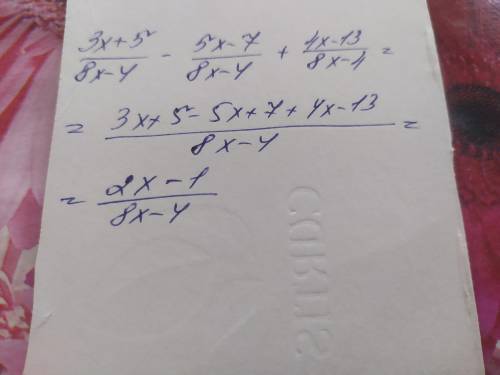 (3x+5)/(8x-4) - (5x-7)/(8x-4) + (4x-13)/(8x-4) =
= (3x+5-5x+7+4x-13)/(8x-4) =
= (2x-1)/(8x-4)